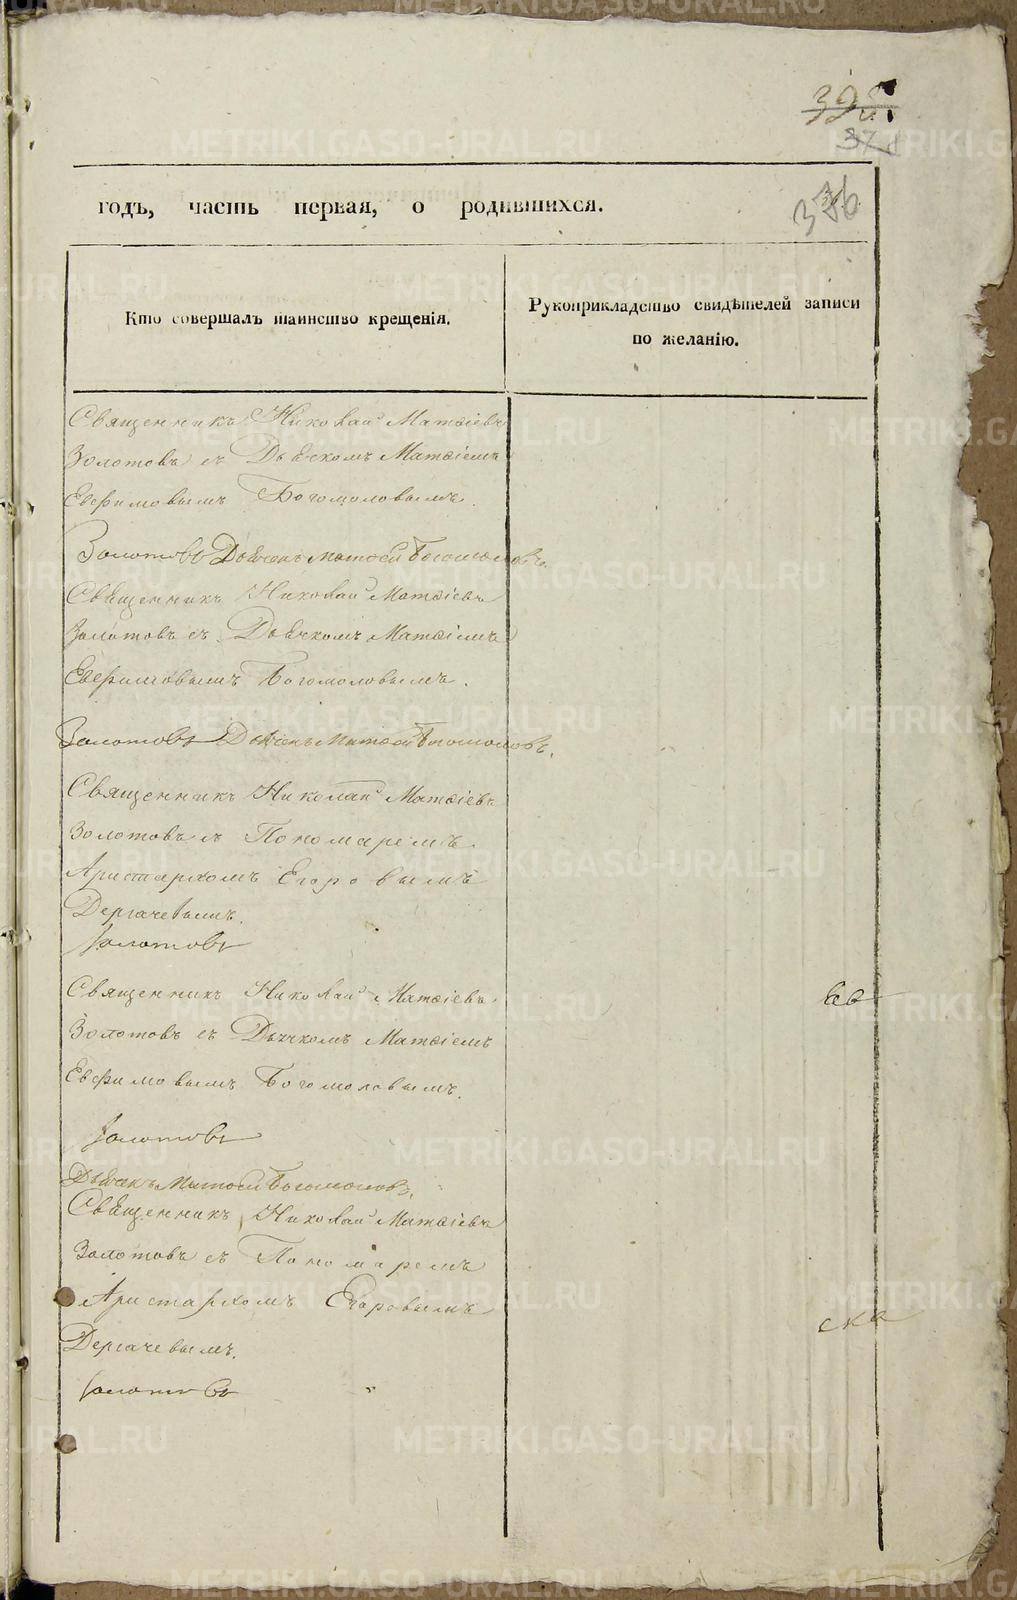 376
годъ, часть первая, о родившихся.
Кто совершалъ таинство крещенія.
Рукоприкладство свидѣтелей записи
по желанію.
Священникъ Николай Матѳіевъ
Золотовъ съ Дьячкомъ Матѳіемъ
Евфимовымъ Богомоловымъ.
Золотовъ Дьячекъ Матѳей Богомоловъ.
Священникъ Николай Матѳіевъ
Золотовъ съ Дьячкомъ Матѳіемъ
Евфимовымъ Богомоловымъ.
Золотовъ Дьячекъ Матѳей Богомоловъ.
Священникъ Николай Матѳіевъ
Золотовъ съ Пономаремъ
Аристархомъ Егоровымъ
Дергачевымъ.
Золотовъ
Священникъ Николай Матѳіевъ
Золотовъ съ Дьячкомъ Матѳіемъ
Евфимовымъ Богомоловымъ.
Золотовъ
Дьячекъ Матѳей Богомоловъ.
Священникъ Николай Матѳіевъ
Золотовъ съ Пономаремъ
Аристархомъ Егоровымъ
ска
Дергачевымъ.
Золотовъ
METRIKI.GASO-URAL.RU